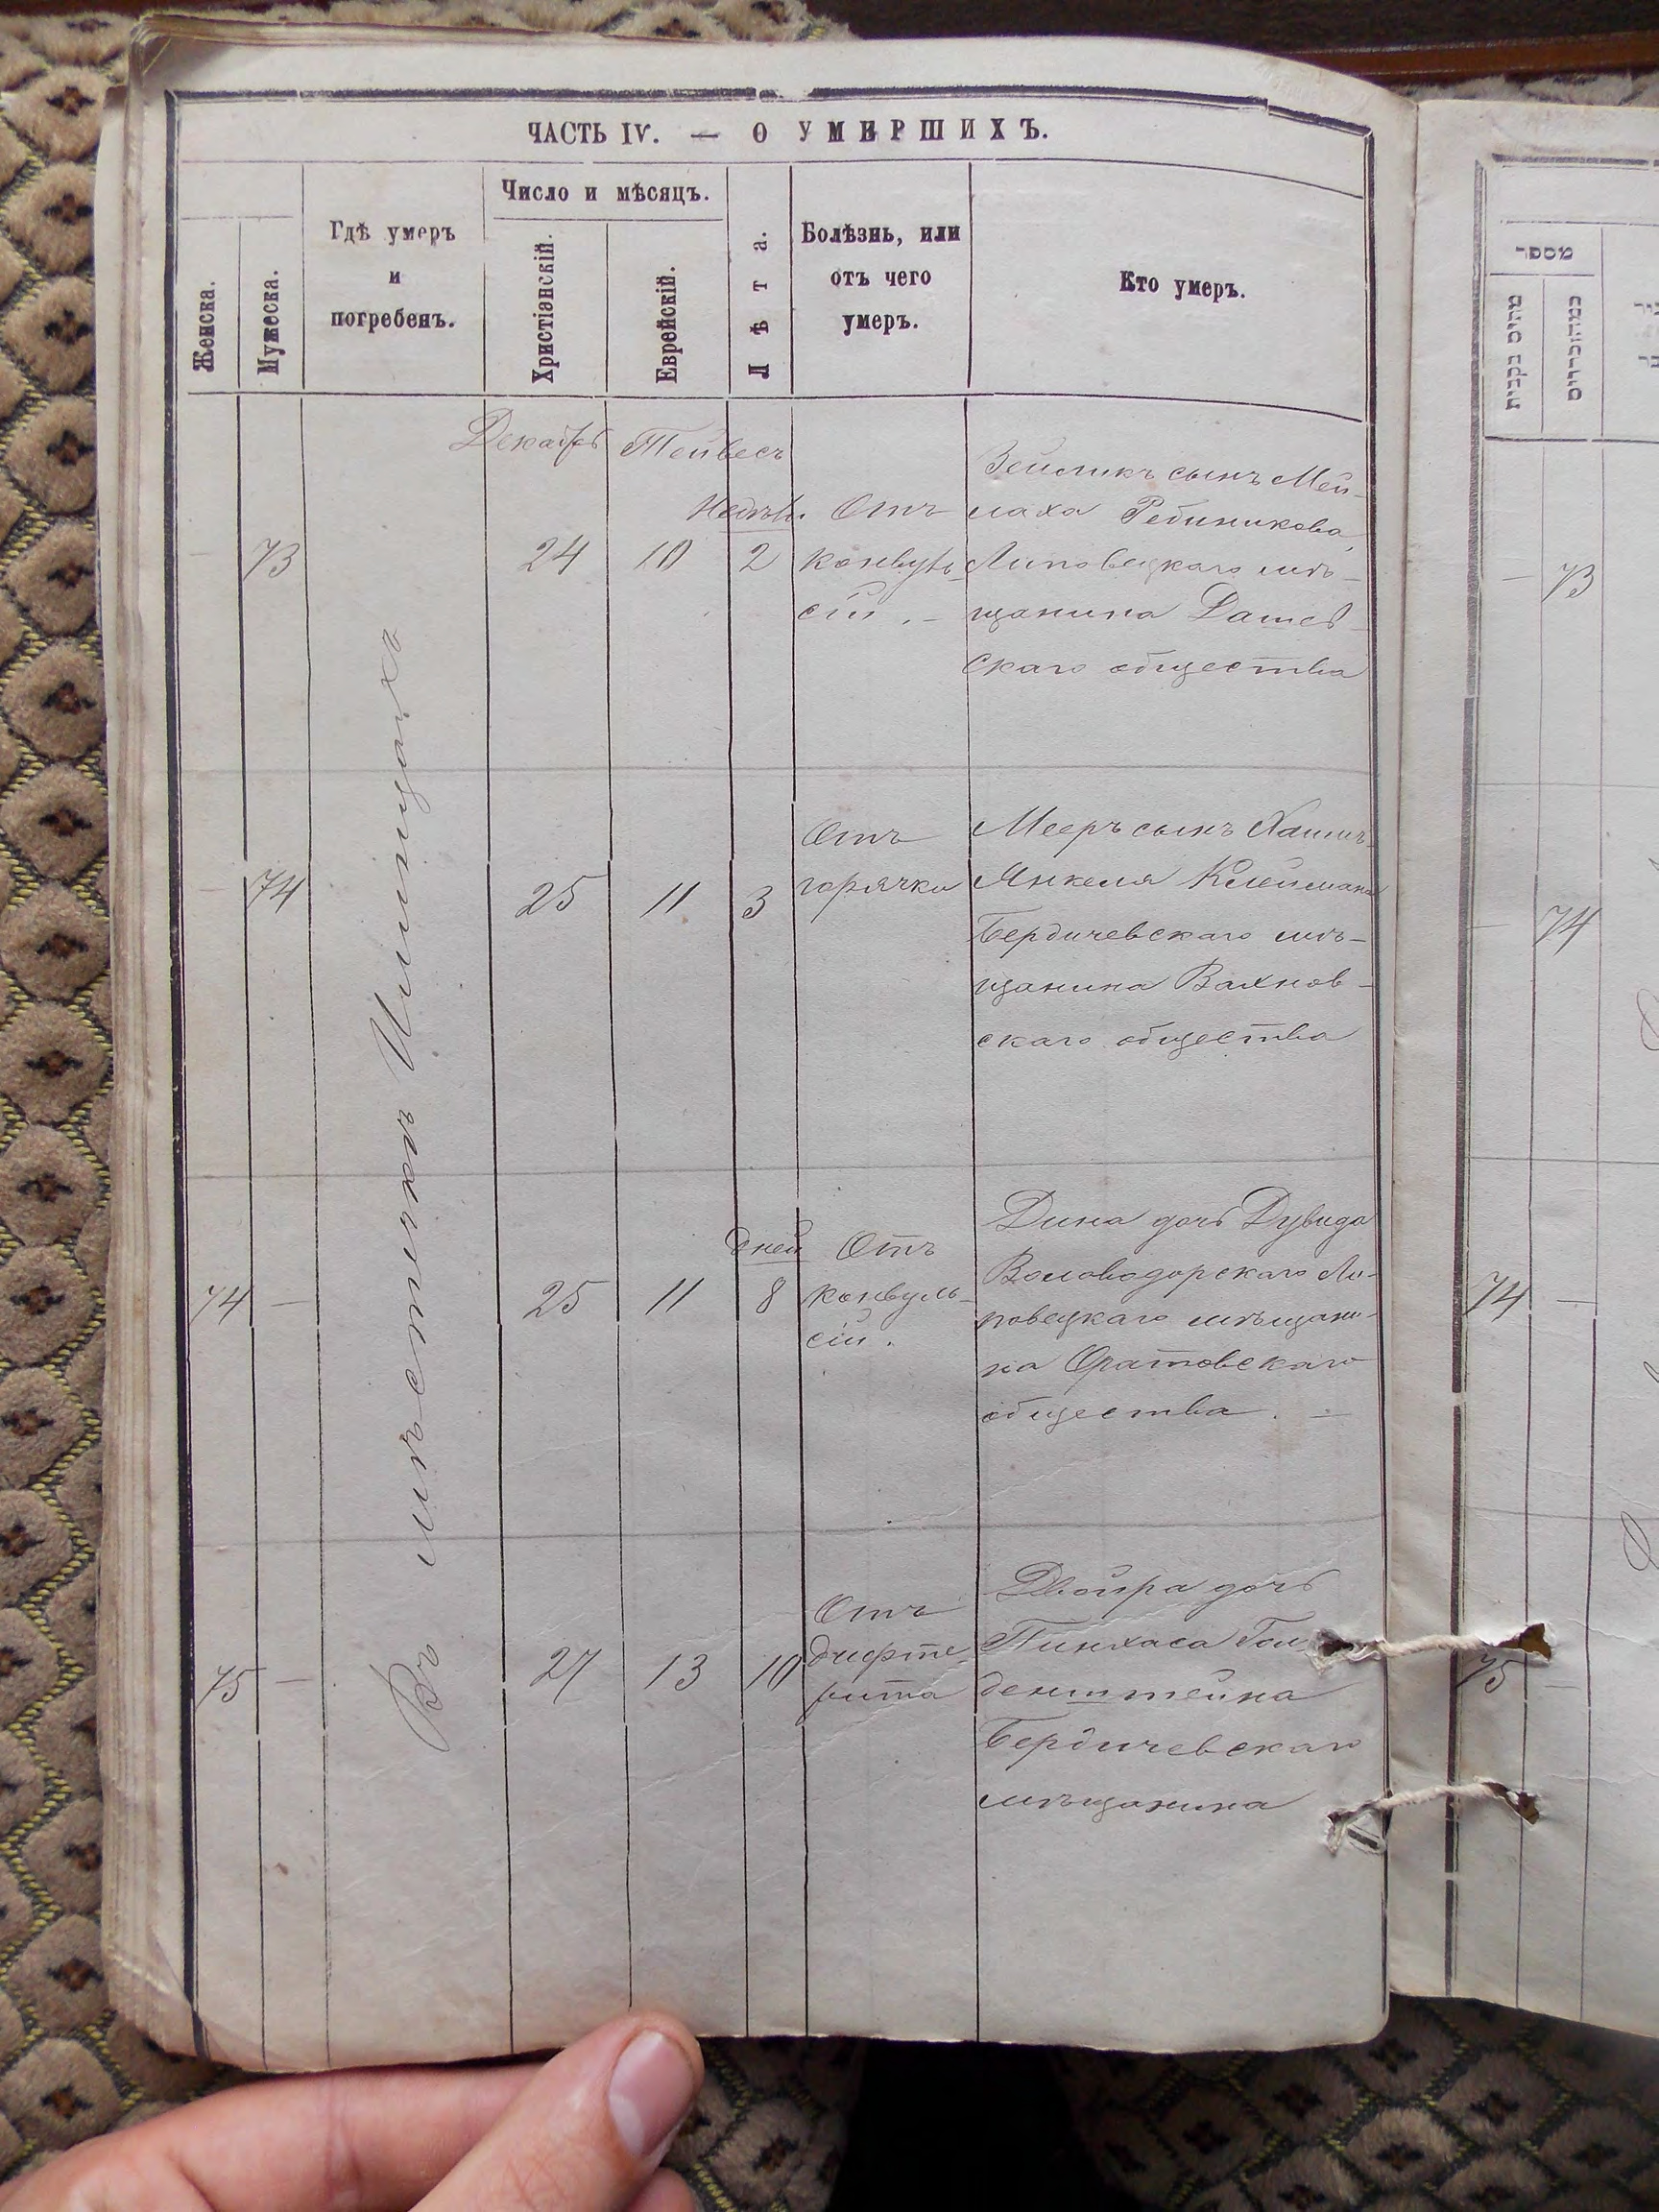 ЧАСТЬ IV. — О УМЕРШИХЪ.
Женска.
Мужеска.
Гдѣ умеръ
и
погребенъ.
Число и мѣсяцъ.
Христіанскій.
Еврейскій.
Лѣта.
Болѣзнь, или
отъ чего
умеръ.
Кто умеръ.
Въ мѣстечкѣ Илинцахъ
Декабрь Тейвесъ
— 73 24 10
Недѣль
2
Отъ
конвуль-
сій. —
Зейликъ сынъ Мей-
лаха
Липовецкаго мѣ-
щанина Дашев-
скаго общества
— 74 25 11 3
Отъ
горячки
Мееръ сынъ Хаимъ-
Янкеля Клеймана
Бердичевскаго мѣ-
щанина Вахнов-
скаго общества
74 — 25 11
дней
8
Отъ
конвуль-
сій.
Дина дочь Дувида
Володарскаго Ли-
повецкаго мѣщани-
на Оратовскаго
общества. —
75 — 27 13 10
Отъ
дифте-
рита
Двойра дочь
Пинхаса Гол
денштейна
Бердичевскаго
мѣщанина
מספר
נקבות
— 73
— 74
74 —
75 —